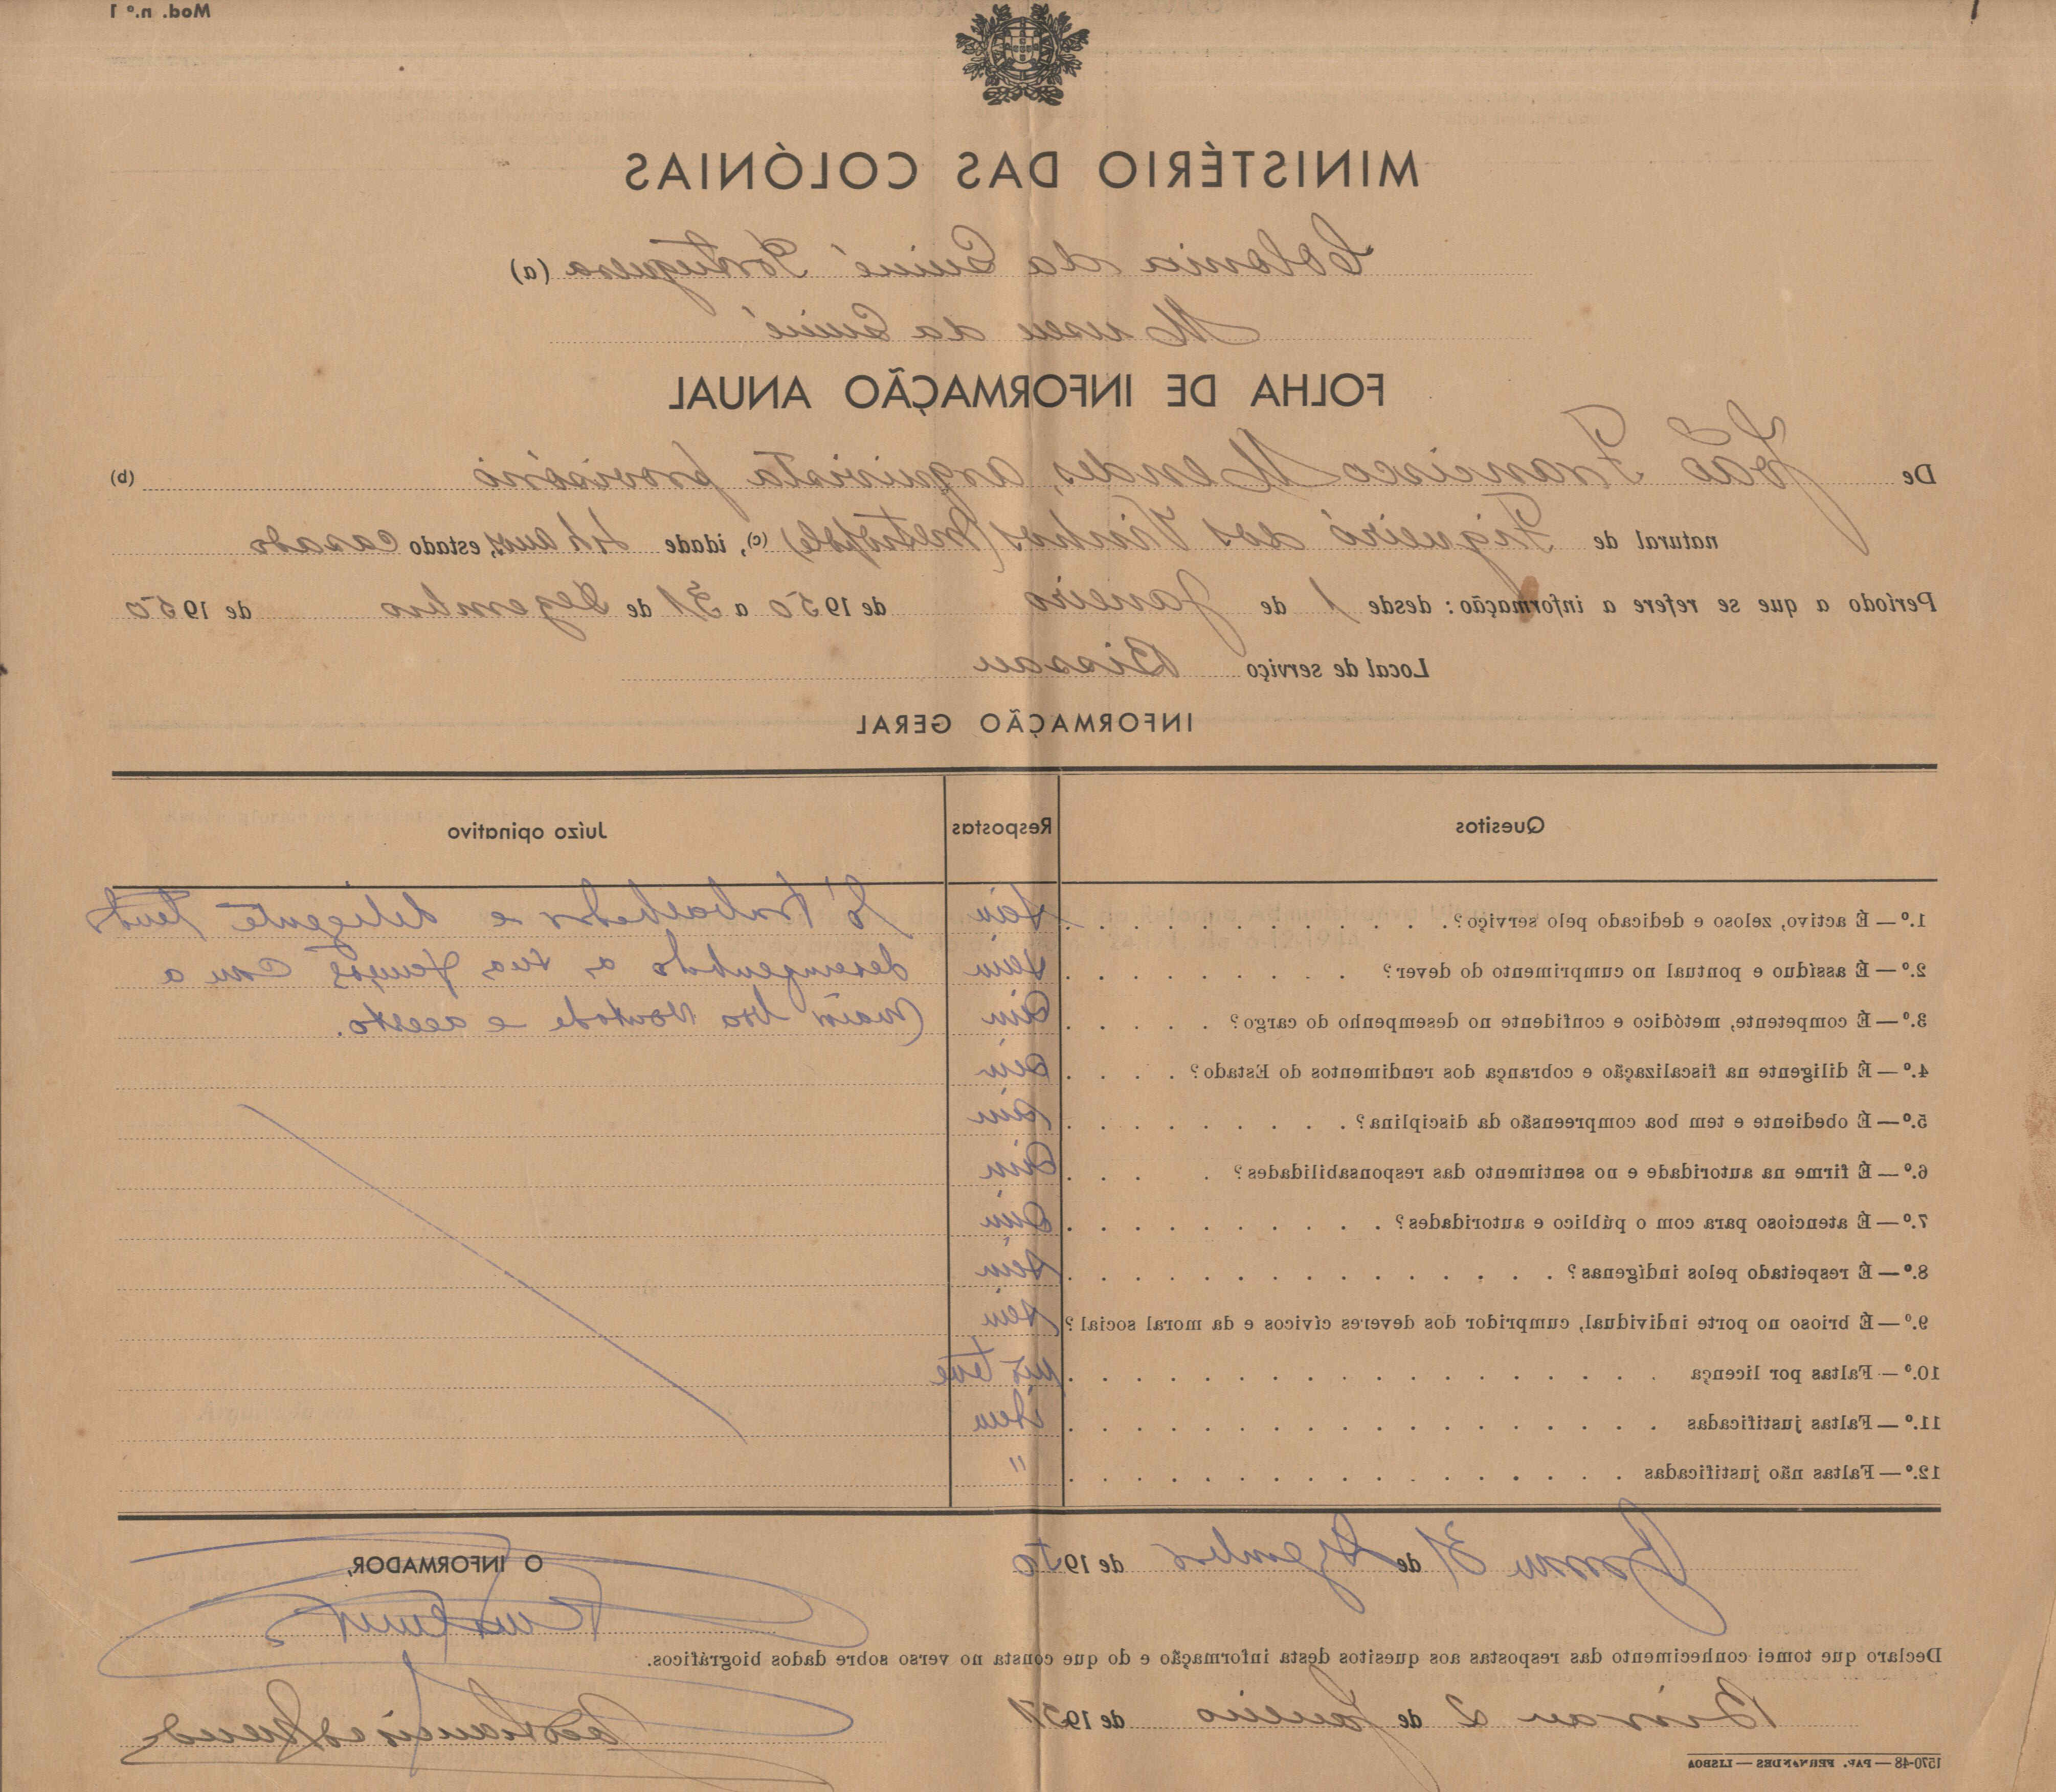 Mod. n.º 1
MINISTÉRIO DAS COLÓNIAS
Colonia da Guiné Portuguesa (a)
Museu da Guiné
FOLHA DE INFORMAÇÃO ANUAL
De João Francisco Mendes, arquivista provisório (b)
natural de Figueiró dos Vinhos (metrópole) (c), idade 44 anos, estado casado
Período a que se refere a informação: desde 1 de Janeiro de 1950 a 31 de Dezembro de 1950
Local de serviço Bissau
INFORMAÇÃO GERAL
Quesitos Respostas Juízo opinativo
1.º — É activo, zeloso e dedicado pelo serviço? Sim É trabalhador e deligente tendo
2.º — É assíduo e pontual no cumprimento do dever? Sim desempenhado a sua função com a
3.º — É competente, metódico e confidente no desempenho do cargo? Sim maior boa vontade e acerto.
4.º — É diligente na fiscalização e cobrança dos rendimentos do Estado? Sim
5.º — É obediente e tem boa compreensão da disciplina? Sim
6.º — É firme na autoridade e no sentimento das responsabilidades? Sim
7.º — É atencioso para com o público e autoridades? Sim
8.º — É respeitado pelos indígenas? Sim
9.º — É brioso no porte individual, cumpridor dos deveres cívicos e da moral social? Sim
10.º — Faltas por licença não teve
11.º — Faltas justificadas idem
12.º — Faltas não justificadas "
Bissau 31 de Dezembro de 1950 O INFORMADOR,
Declaro que tomei conhecimento das respostas aos quesitos desta informação e do que consta no verso sobre dados biográficos.
Bissau 2 de Janeiro de 1951
João Francisco Mendes
1570-48 — PAP. FERNANDES — LISBOA